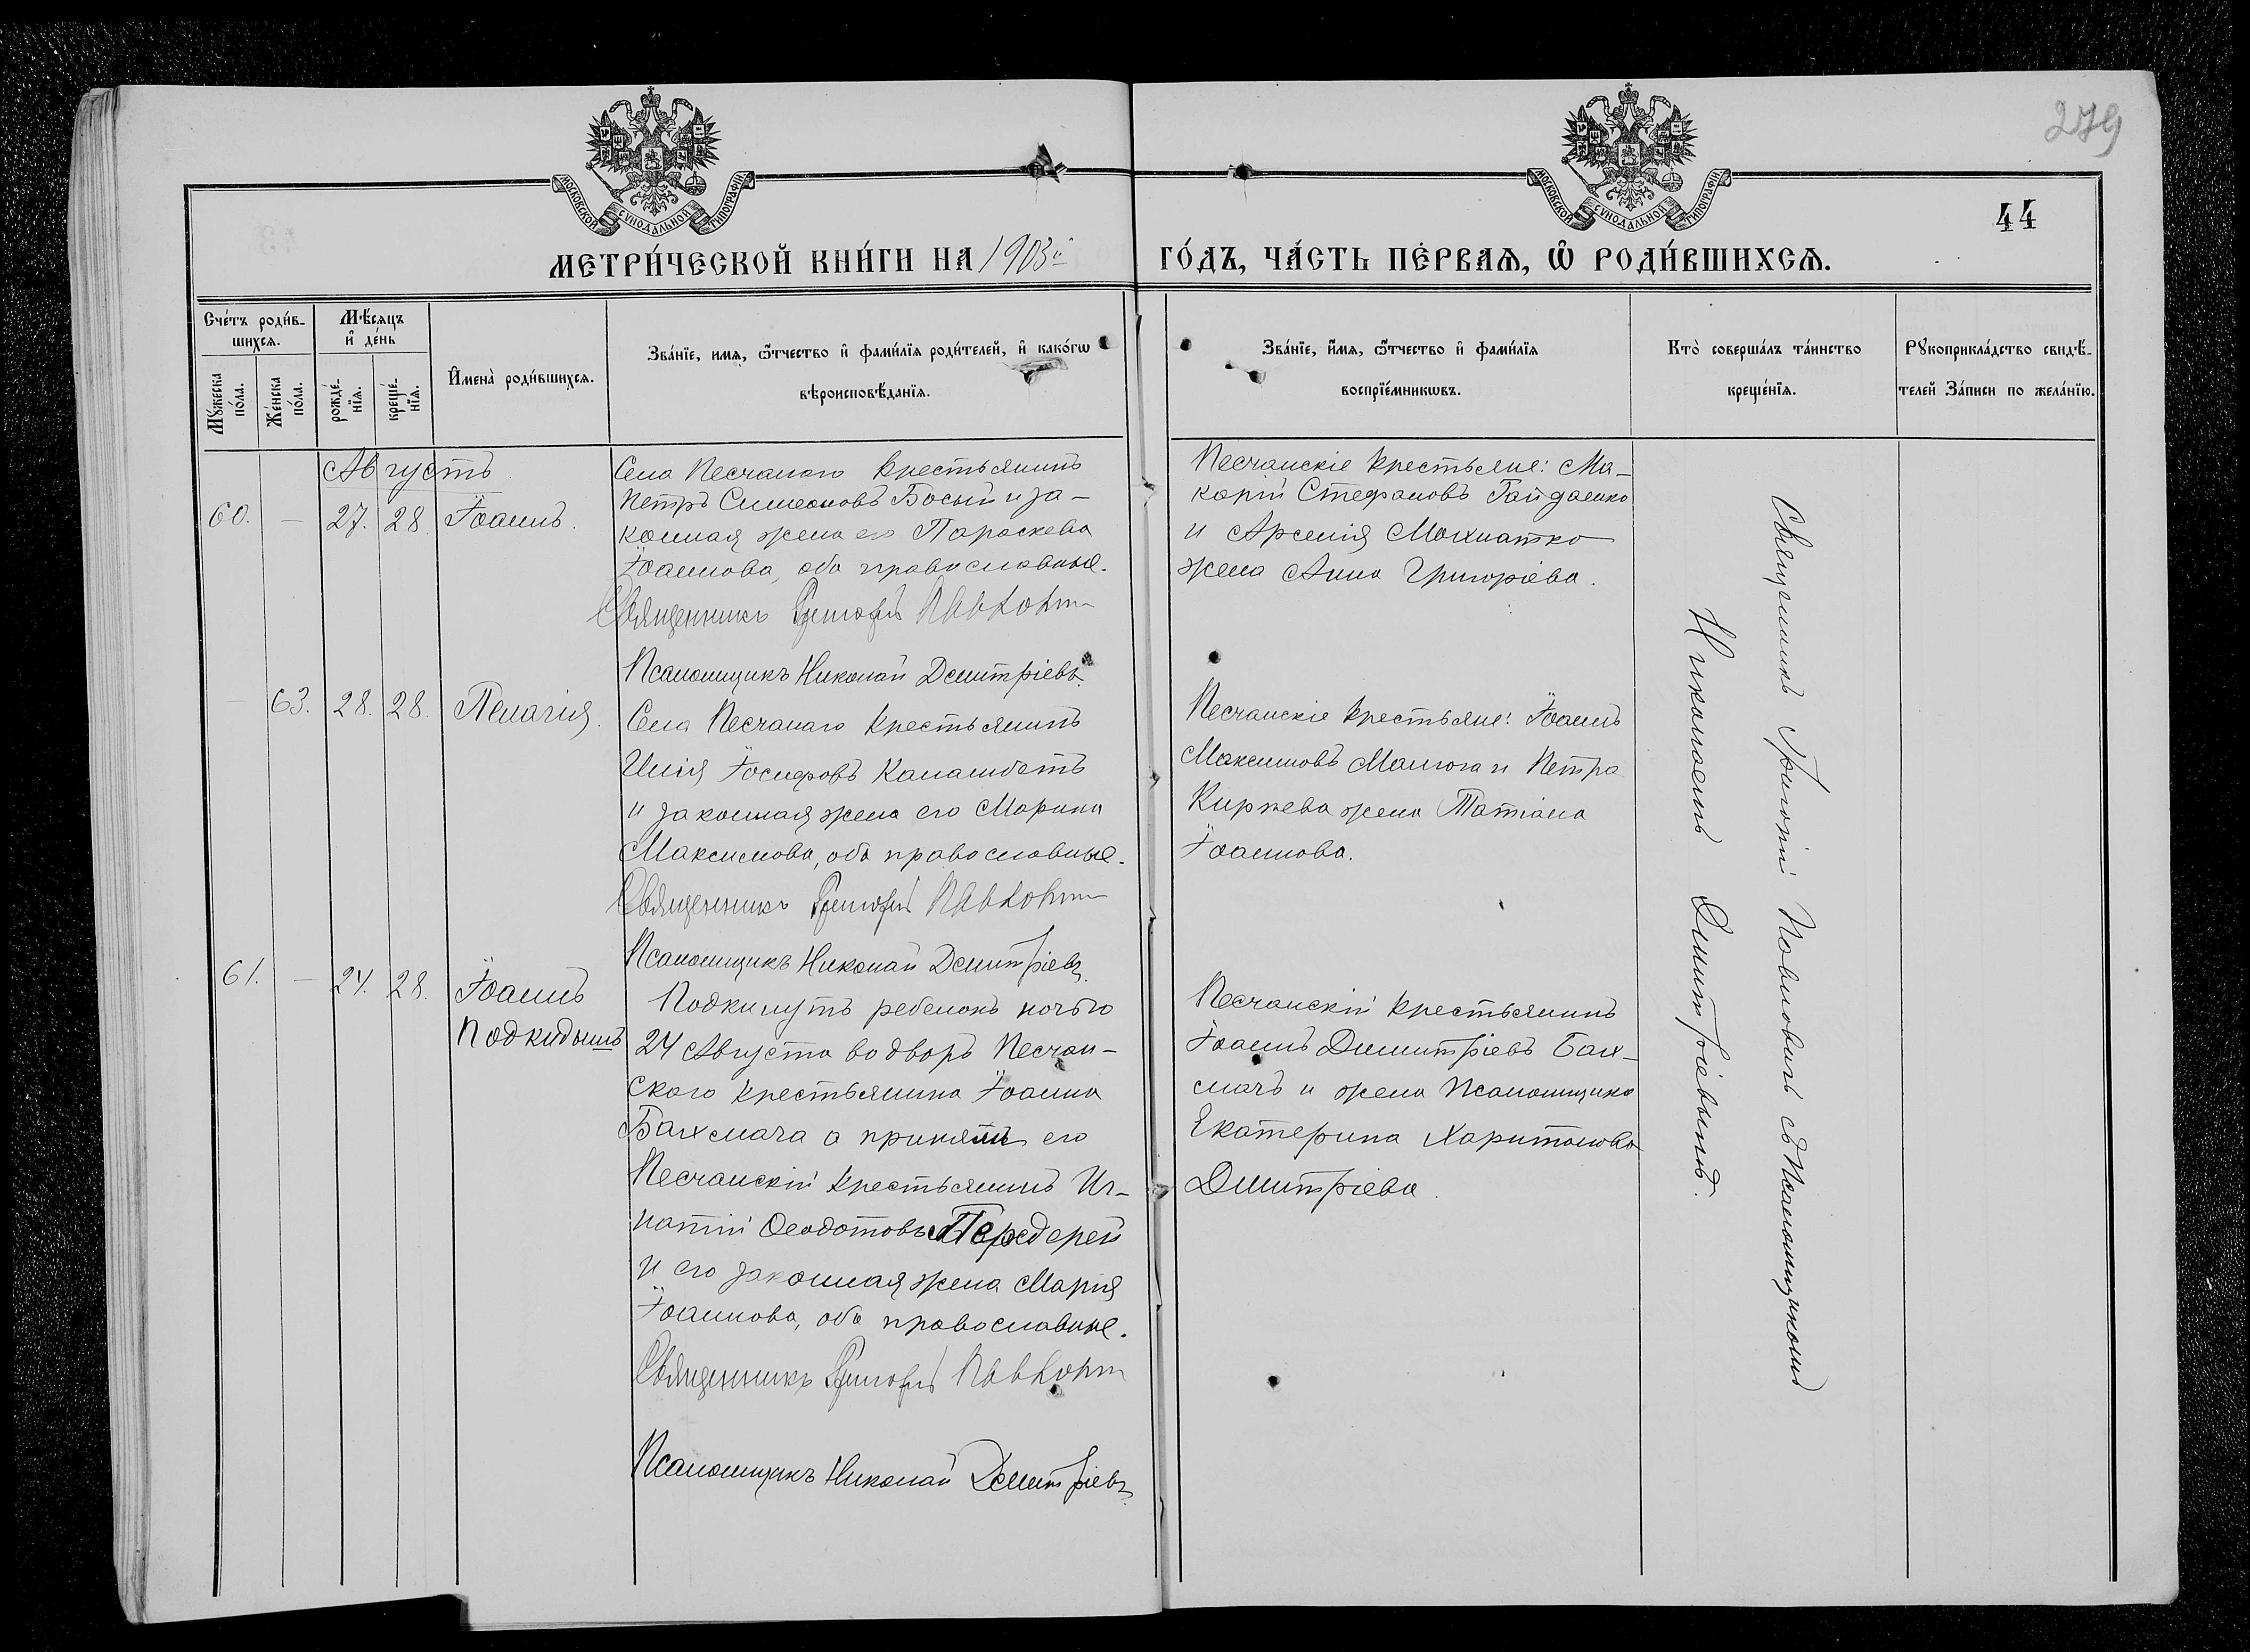 279
МОСКОВСКОЙ СѴНОДАЛЬНОЙ ТИПОГРАФІИ
МОСКОВСКОЙ СѴНОДАЛЬНОЙ ТИПОГРАФІИ
44
МЕТРИ́ЧЕСКОЙ КНИ́ГИ НА 1903й ГО́ДЪ, ЧА́СТЬ ПЕ́РВАѦ, Ѡ҆ РОДИ́ВШИХСѦ.
Сче́тъ роди́в-
шихсѧ.
Мꙋ́жеска
по́ла.
Же́нска
по́ла.
Мѣ́сѧцъ
и҆ де́нь
рожде́-
нїѧ.
креще́-
нїѧ.
И҆мена̀ роди́вшихсѧ.
Зва́нїе, имѧ, ѻ҆́тчество и҆ фами́лїѧ роди́телей, и҆ како́гѡ
вѣроисповѣ́данїѧ.
Зва́нїе, и҆́мѧ, ѻ҆́тчество и҆ фами́лїѧ
воспрїе́мникѡвъ.
Кто̀ соверша́лъ та́инство
креще́нїѧ.
Рꙋкоприкла́дство свидѣ́-
телей За́писи по жела́нїю.
Августъ.
60. — 27. 28 Іоаннъ.
Села Песчанаго крестьянинъ
Петръ Симеоновъ Босый и за-
конная жена его Параскева
Іоаннова, оба православные.
Священникъ Григорій Павловичъ
Псаломщикъ Николай Демитріевъ.
Песчанскіе крестьяне: Ма-
карій Стефановъ Гайдаенко
и Арсенія Мохнатко
жена Анна Григоріева.
— 63. 28. 28. Пелагія.
Села Песчанаго крестьянинъ
Илія Іосифовъ Каламбетъ
и законная жена его Марина
Максимова, оба православные.
Священникъ Григорій Павловичъ
Псаломщикъ Николай Демитріевъ.
Песчанскіе крестьяне: Іоаннъ
Максимовъ Малюга и Петра
Киржева жена Татіана
Іоаннова.
61. — 24. 28. Іоаннъ
Подкидышъ
Подкинутъ ребенокъ ночью
24 Августа во дворъ Песчан-
скаго крестьянина Іоанна
Бахмача а приняли его
Песчанскій крестьянинъ Иг-
натій Ѳеодотовъ Передерей
и его законная жена Марія
Іоаннова, оба православные.
Священникъ Григорій Павловичъ
Псаломщикъ Николай Демитріевъ.
Песчанскій крестьянинъ
Іоаннъ Димитріевъ Бах-
мачъ и жена Псаломщика
Екатерина Харитонова
Димитріева.
Священникъ Григорій Павловичъ съ Псаломщикомъ
Николаемъ Димитріевымъ.